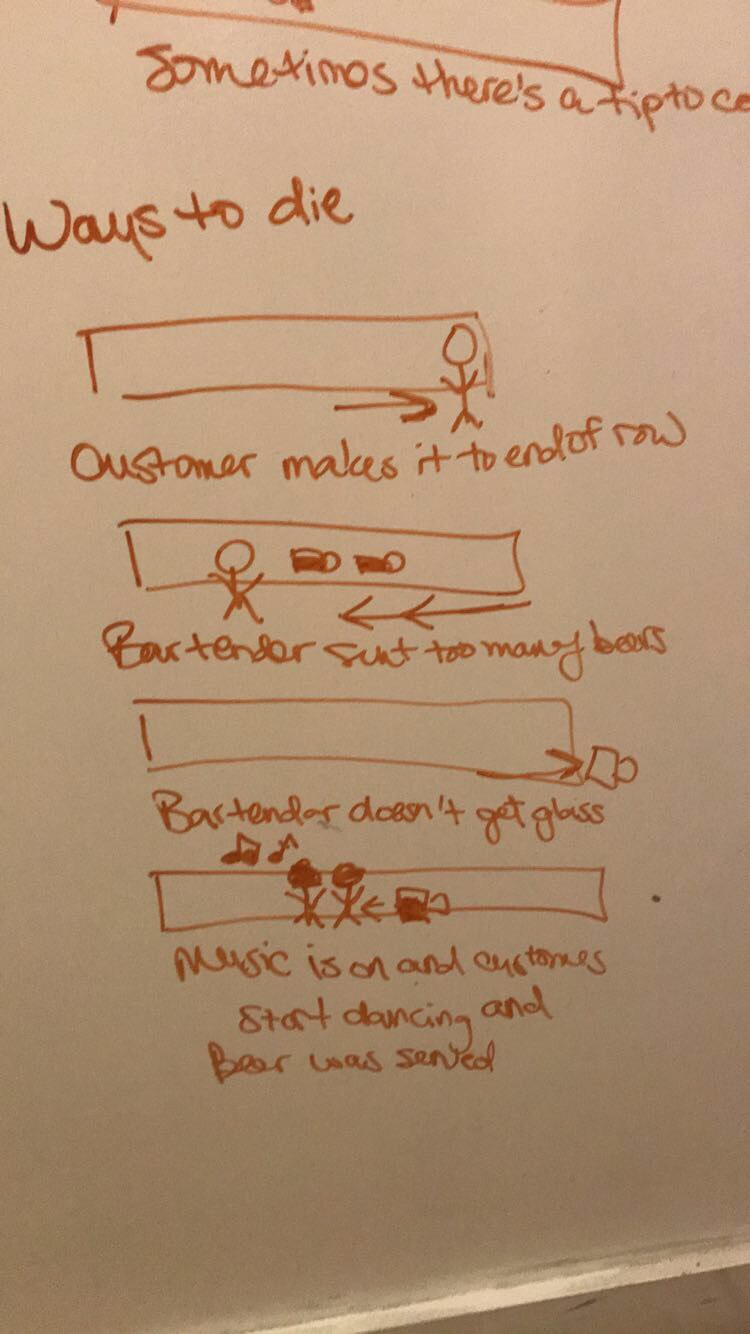 Sometimes there's a tip to co
Ways to die
Customer makes it to end of row
Bartender sent too many beers
Bartender doesn't get glass
Music is on and customes
start dancing and
Beer was served